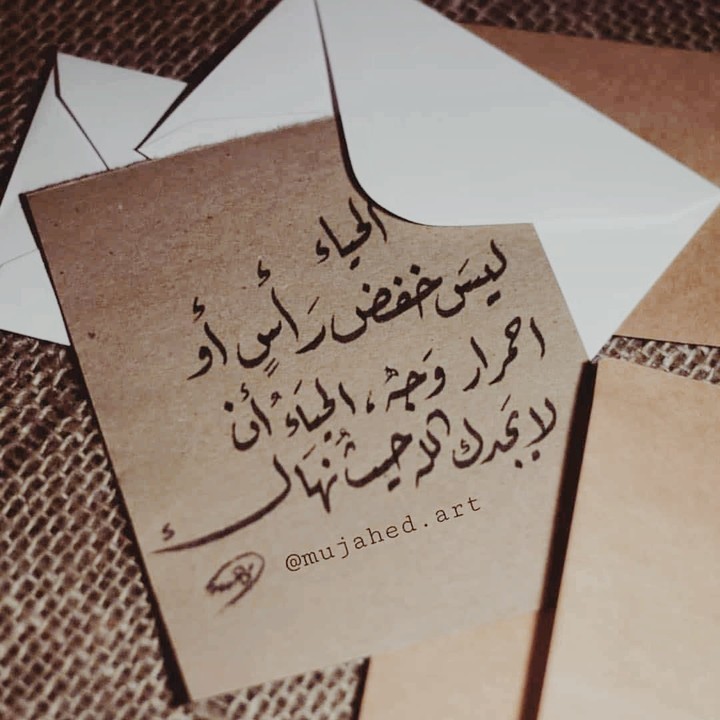 الحياء
ليسَ خفض رَأسٍ أو
احمرار وَجهْ، الحيَاءُ أن
لا يجَدك الله حيث نُهَاك
@mujahed.art